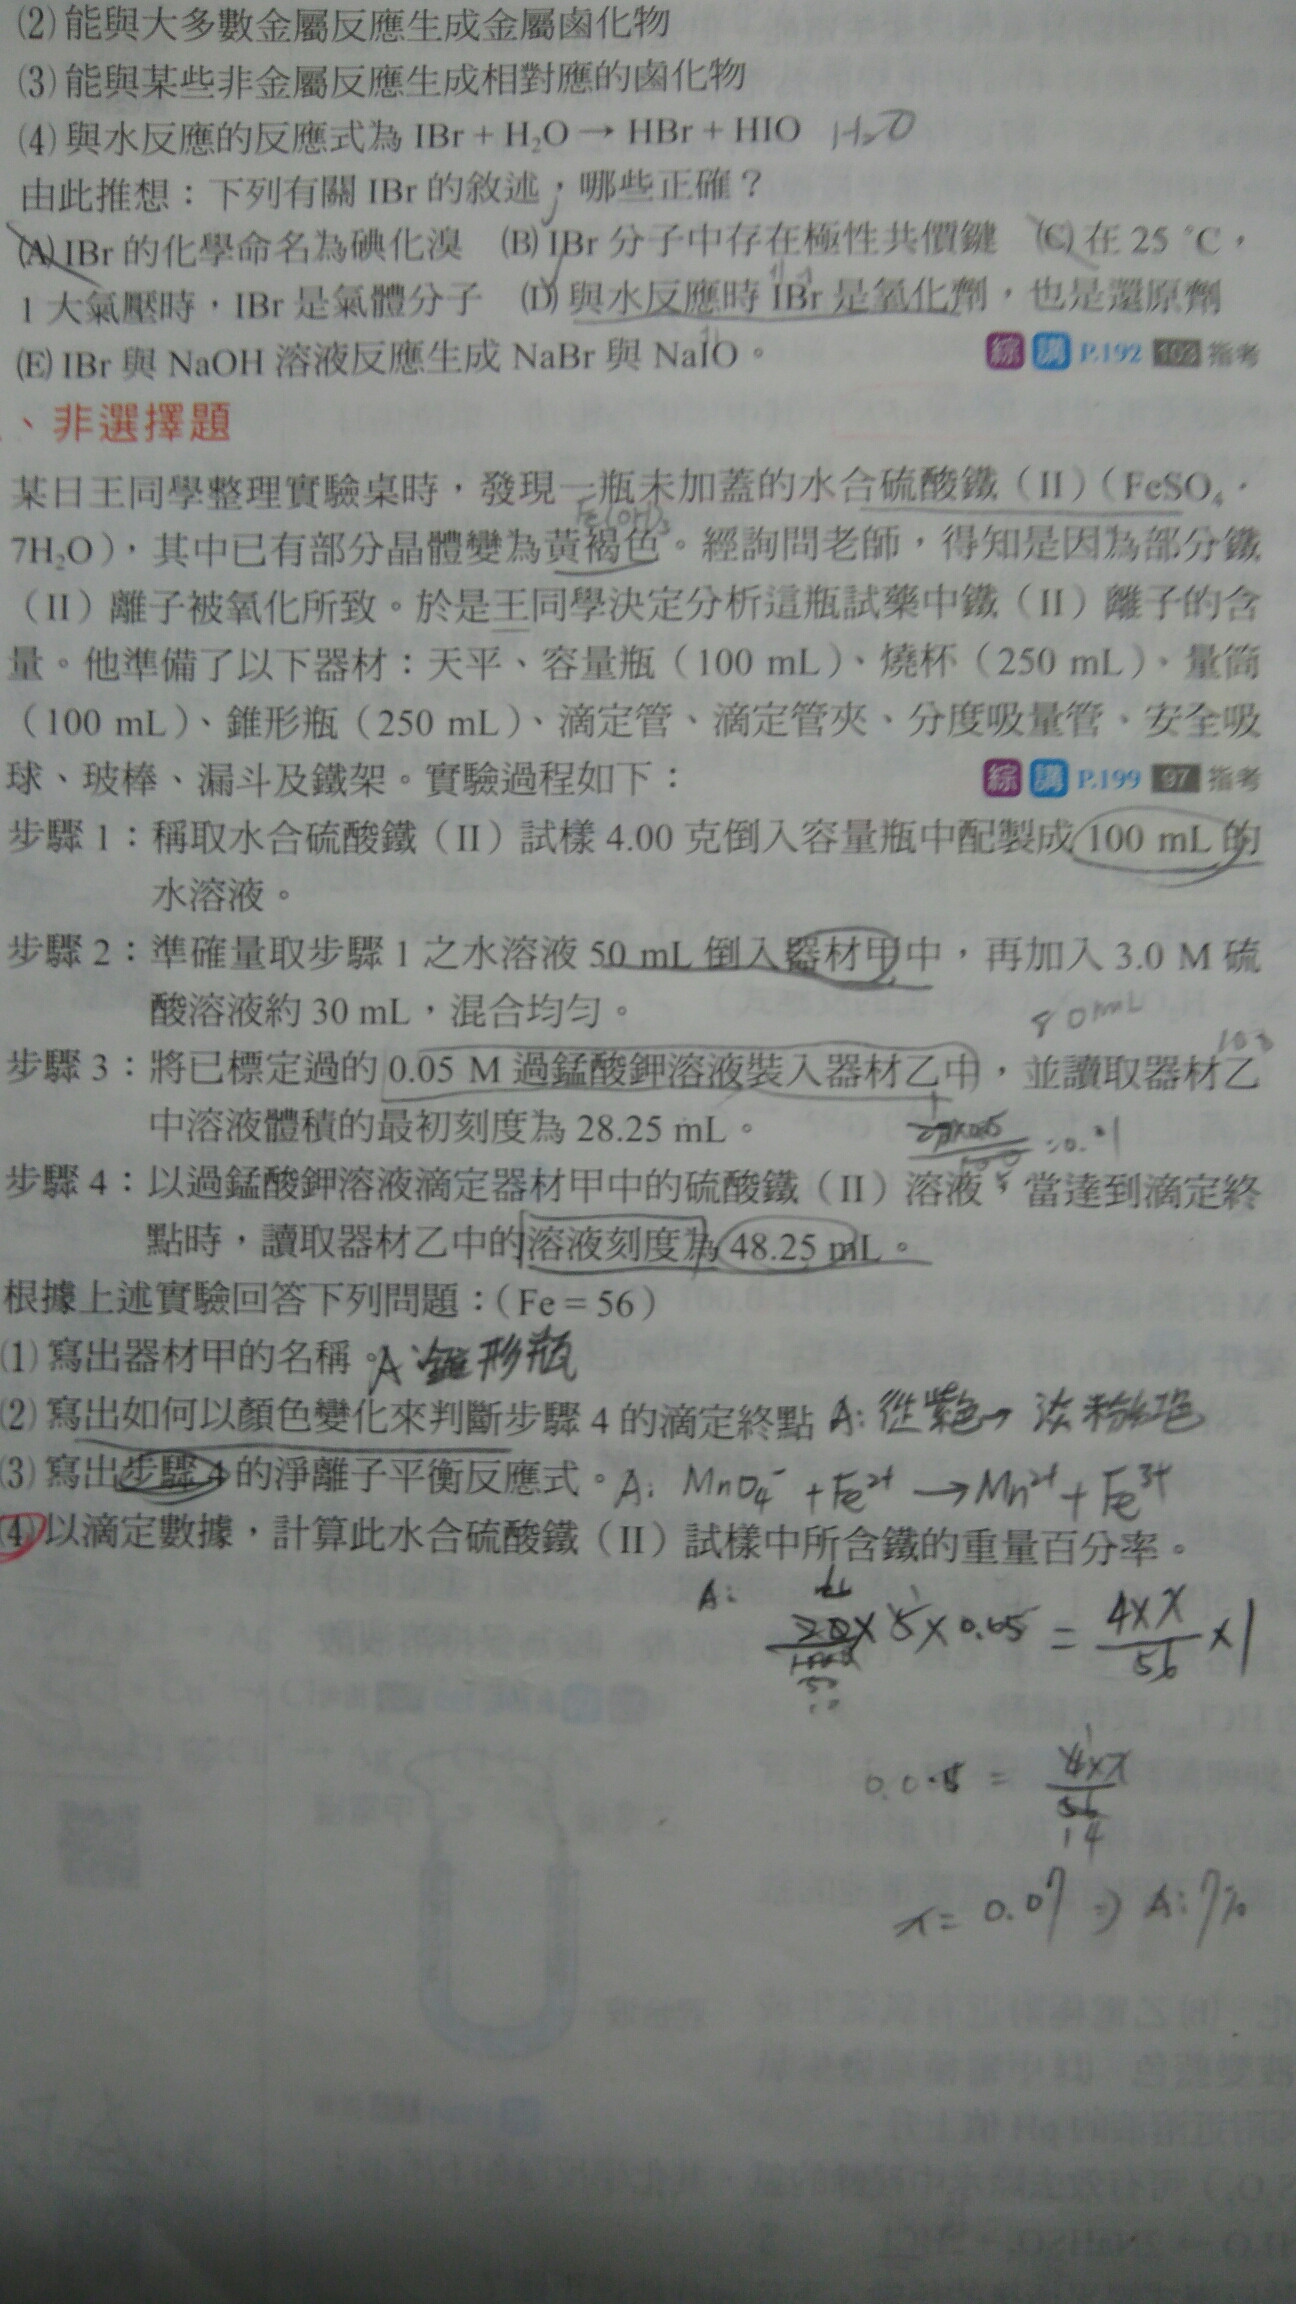 (2)能與大多數金屬反應生成金屬鹵化物
(3)能與某些非金屬反應生成相對應的鹵化物
(4)與水反應的反應式為 IBr + H₂O → HBr + HIO H₂O
由此推想：下列有關 IBr 的敘述，哪些正確？
(A) IBr 的化學命名為碘化溴 (B) IBr 分子中存在極性共價鍵 (C) 在 25 °C，
1 大氣壓時，IBr 是氣體分子 (D) 與水反應時 IBr 是氧化劑，也是還原劑
(E) IBr 與 NaOH 溶液反應生成 NaBr 與 NaIO。 綜 講 P.192 103 指考
、非選擇題
某日王同學整理實驗桌時，發現一瓶未加蓋的水合硫酸鐵（II）（FeSO₄．
Fe(OH)₃
7H₂O），其中已有部分晶體變為黃褐色。經詢問老師，得知是因為部分鐵
（II）離子被氧化所致。於是王同學決定分析這瓶試藥中鐵（II）離子的含
量。他準備了以下器材：天平、容量瓶（100 mL）、燒杯（250 mL）、量筒
（100 mL）、錐形瓶（250 mL）、滴定管、滴定管夾、分度吸量管、安全吸
球、玻棒、漏斗及鐵架。實驗過程如下： 綜 講 P.199 97 指考
步驟 1：稱取水合硫酸鐵（II）試樣 4.00 克倒入容量瓶中配製成 100 mL 的
水溶液。
步驟 2：準確量取步驟 1 之水溶液 50 mL 倒入器材甲中，再加入 3.0 M 硫
酸溶液約 30 mL，混合均勻。
80mL
步驟 3：將已標定過的 0.05 M 過錳酸鉀溶液裝入器材乙中，並讀取器材乙
中溶液體積的最初刻度為 28.25 mL。
步驟 4：以過錳酸鉀溶液滴定器材甲中的硫酸鐵（II）溶液，當達到滴定終
點時，讀取器材乙中的溶液刻度為 48.25 mL。
根據上述實驗回答下列問題：（Fe = 56）
(1) 寫出器材甲的名稱。A：錐形瓶
(2) 寫出如何以顏色變化來判斷步驟 4 的滴定終點 A：從紫色→ 淡粉紅色
(3) 寫出步驟 4 的淨離子平衡反應式。A：MnO₄⁻ + Fe²⁺ → Mn²⁺ + Fe³⁺
(4) 以滴定數據，計算此水合硫酸鐵（II）試樣中所含鐵的重量百分率。
A： 20/1000 × 5 × 0.05 = 4×x/56 × 1
= 4×x/56
14
x = 0.07 ⇒ A：7%